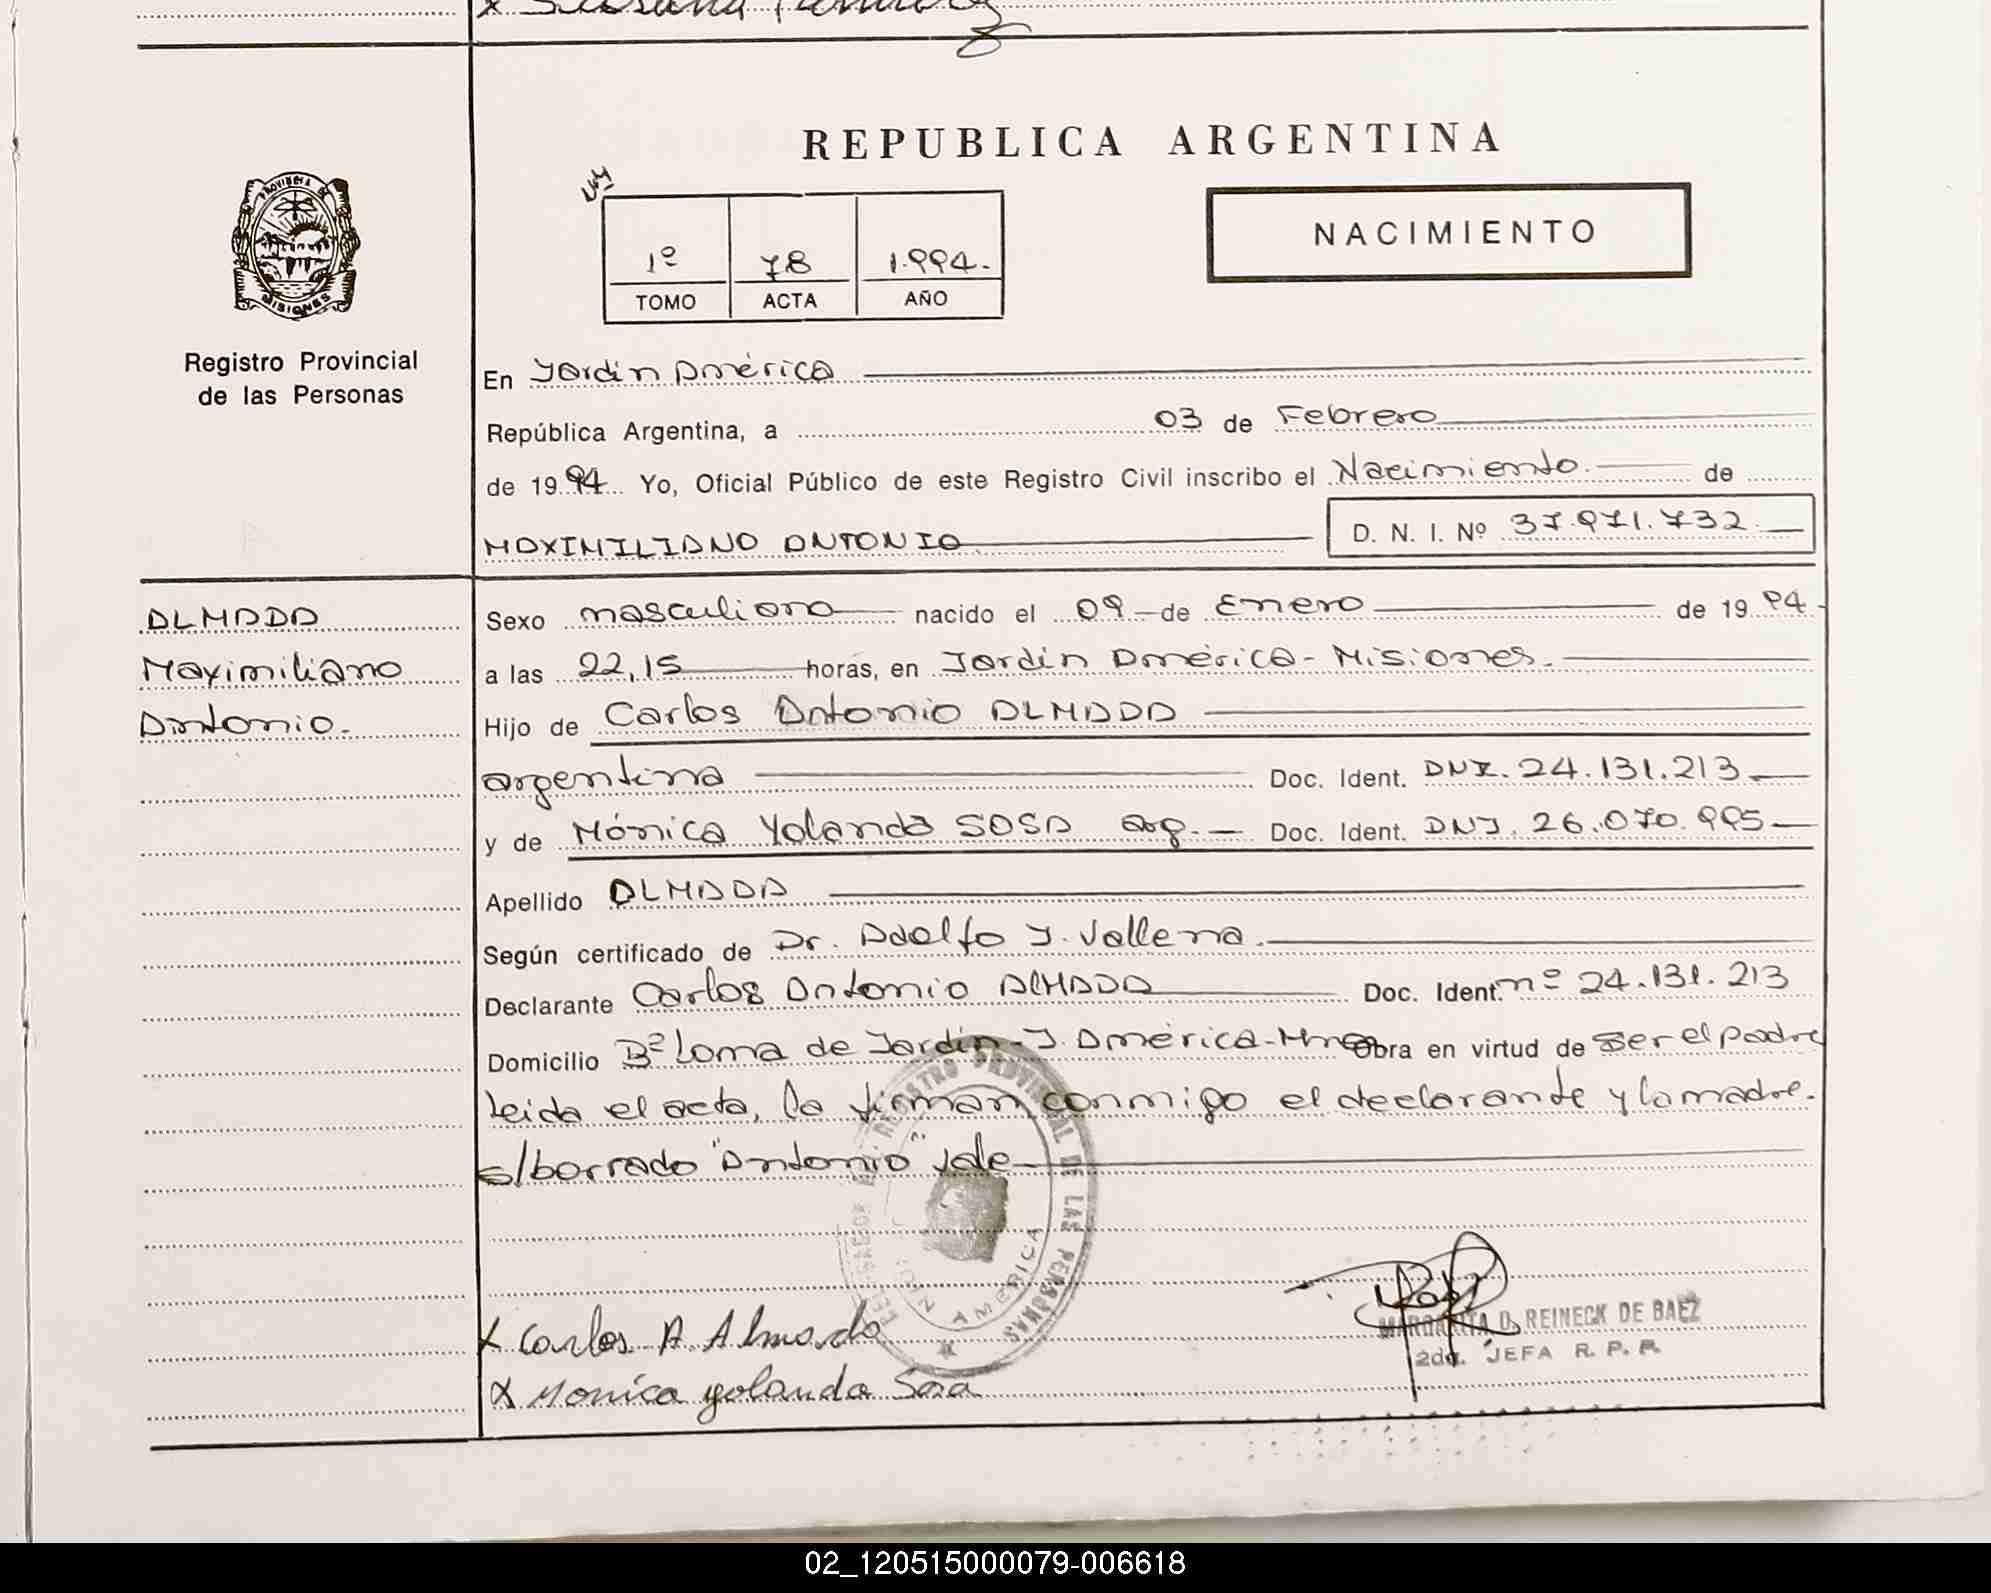 REPUBLICA ARGENTINA
PROVINCIA DE
MISIONES
Registro Provincial
de las Personas
1º 78 1.994.
TOMO ACTA AÑO
NACIMIENTO
En Jardín América
República Argentina, a 03 de Febrero
de 1994 Yo, Oficial Público de este Registro Civil inscribo el Nacimiento. de
MAXIMILIANO ANTONIO D. N. I. Nº 37.971.732
ALMADA
Maximiliano
Antonio.
Sexo masculino nacido el 09 de Enero de 1994
a las 22,15 horas, en Jardín América - Misiones.
Hijo de Carlos Antonio ALMADA
argentina Doc. Ident. DNI. 24.131.213
y de Mónica Yolanda SOSA arg. Doc. Ident. DNI. 26.070.995
Apellido ALMADA
Según certificado de Dr. Adolfo J. Vallena.
Declarante Carlos Antonio ALMADA Doc. Ident. nº 24.131.213
Domicilio Bº Loma de Jardín - J. América - Mnes Obra en virtud de ser el padre
Leida el acta, la firman conmigo el declarante y la madre.
s/borrado "Antonio" Vale
REGISTRO PROVINCIAL DE LAS PERSONAS
AMERICA
x Carlos A. Almada
x Monica yolanda Sosa
MARGARITA D. REINECK DE BAEZ
2da. JEFA R. P. P.
02_120515000079-006618